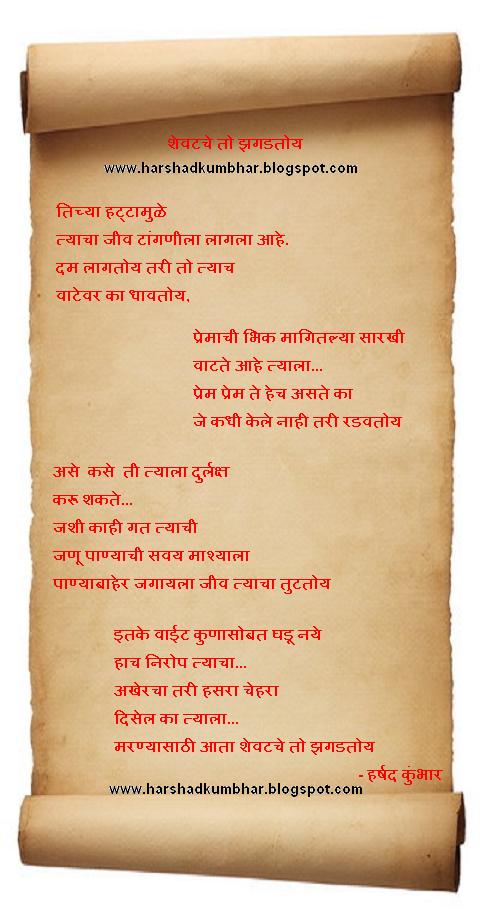 शेवटचे तो झगडतोय
www.harshadkumbhar.blogspot.com
तिच्या हट्टामुळे
त्याचा जीव टांगणीला लागला आहे.
दम लागतोय तरी तो त्याच
वाटेवर का धावतोय.
प्रेमाची भिक मागितल्या सारखी
वाटते आहे त्याला...
प्रेम प्रेम ते हेच असते का
जे कधी केले नाही तरी रडवतोय
असे कसे ती त्याला दुर्लक्ष
करू शकते...
जशी काही गत त्याची
जणू पाण्याची सवय माश्याला
पाण्याबाहेर जगायला जीव त्याचा तुटतोय
इतके वाईट कुणासोबत घडू नये
हाच निरोप त्याचा...
अखेरचा तरी हसरा चेहरा
दिसेल का त्याला...
मरण्यासाठी आता शेवटचे तो झगडतोय
- हर्षद कुंभार
www.harshadkumbhar.blogspot.com